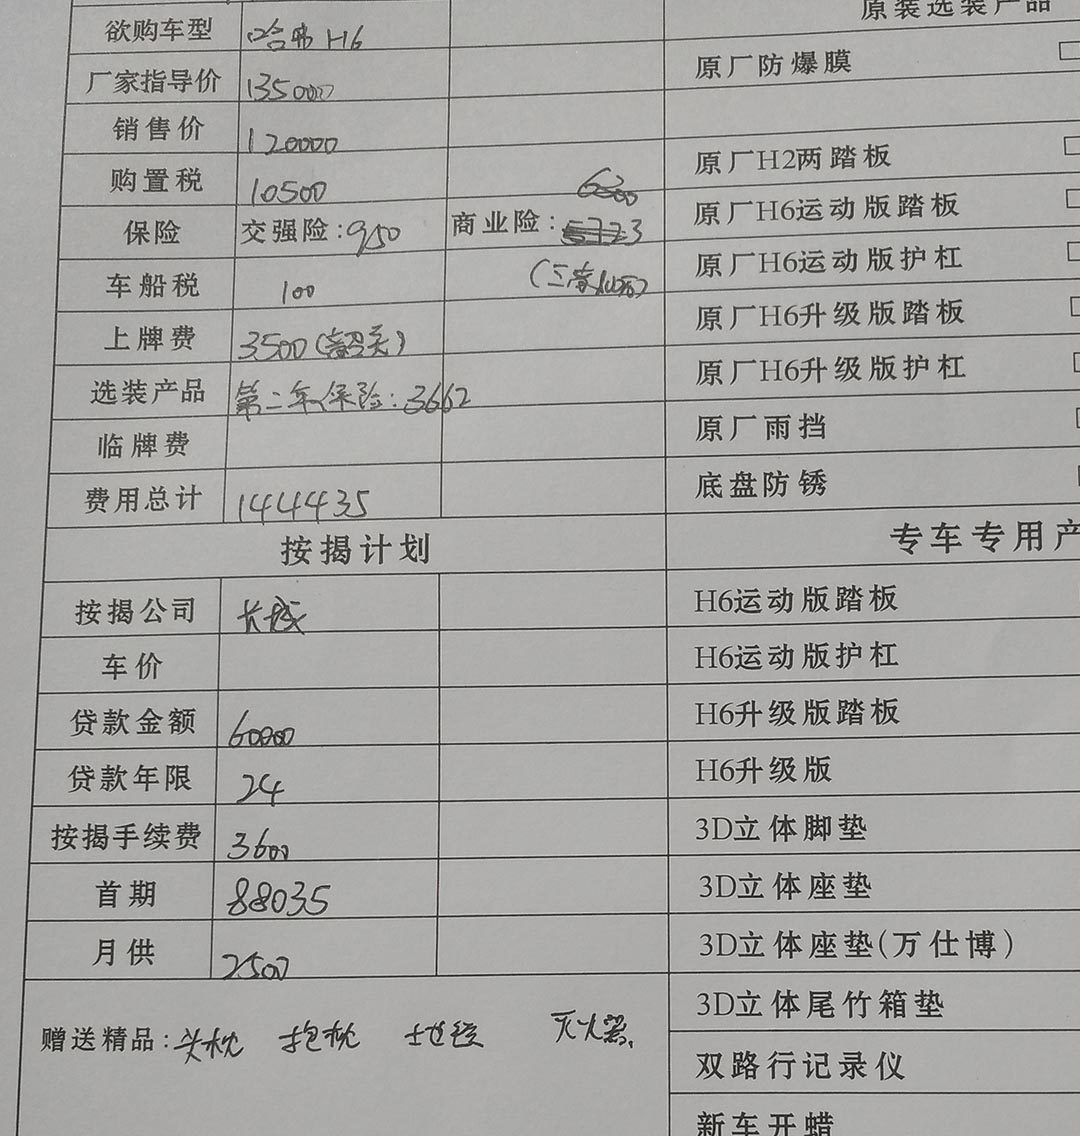 原装选装产品
欲购车型 哈弗H6
厂家指导价 135000
原厂防爆膜
销售价 120000
购置税 10500
6300
原厂H2两踏板
保险 交强险:950 商业险:
原厂H6运动版踏板
车船税 100
原厂H6运动版护杠
上牌费 3500(韶关)
原厂H6升级版踏板
选装产品 第二年保险:3662
原厂H6升级版护杠
临牌费
原厂雨挡
费用总计 1444435
底盘防锈
按揭计划
专车专用产
按揭公司 长城
H6运动版踏板
车价
H6运动版护杠
贷款金额 60000
H6升级版踏板
贷款年限 24
H6升级版
按揭手续费 3600
3D立体脚垫
首期 88035
3D立体座垫
月供 2500
3D立体座垫(万仕博)
3D立体尾竹箱垫
赠送精品:头枕 抱枕 地毯 灭火器
双路行记录仪
新车开蜡